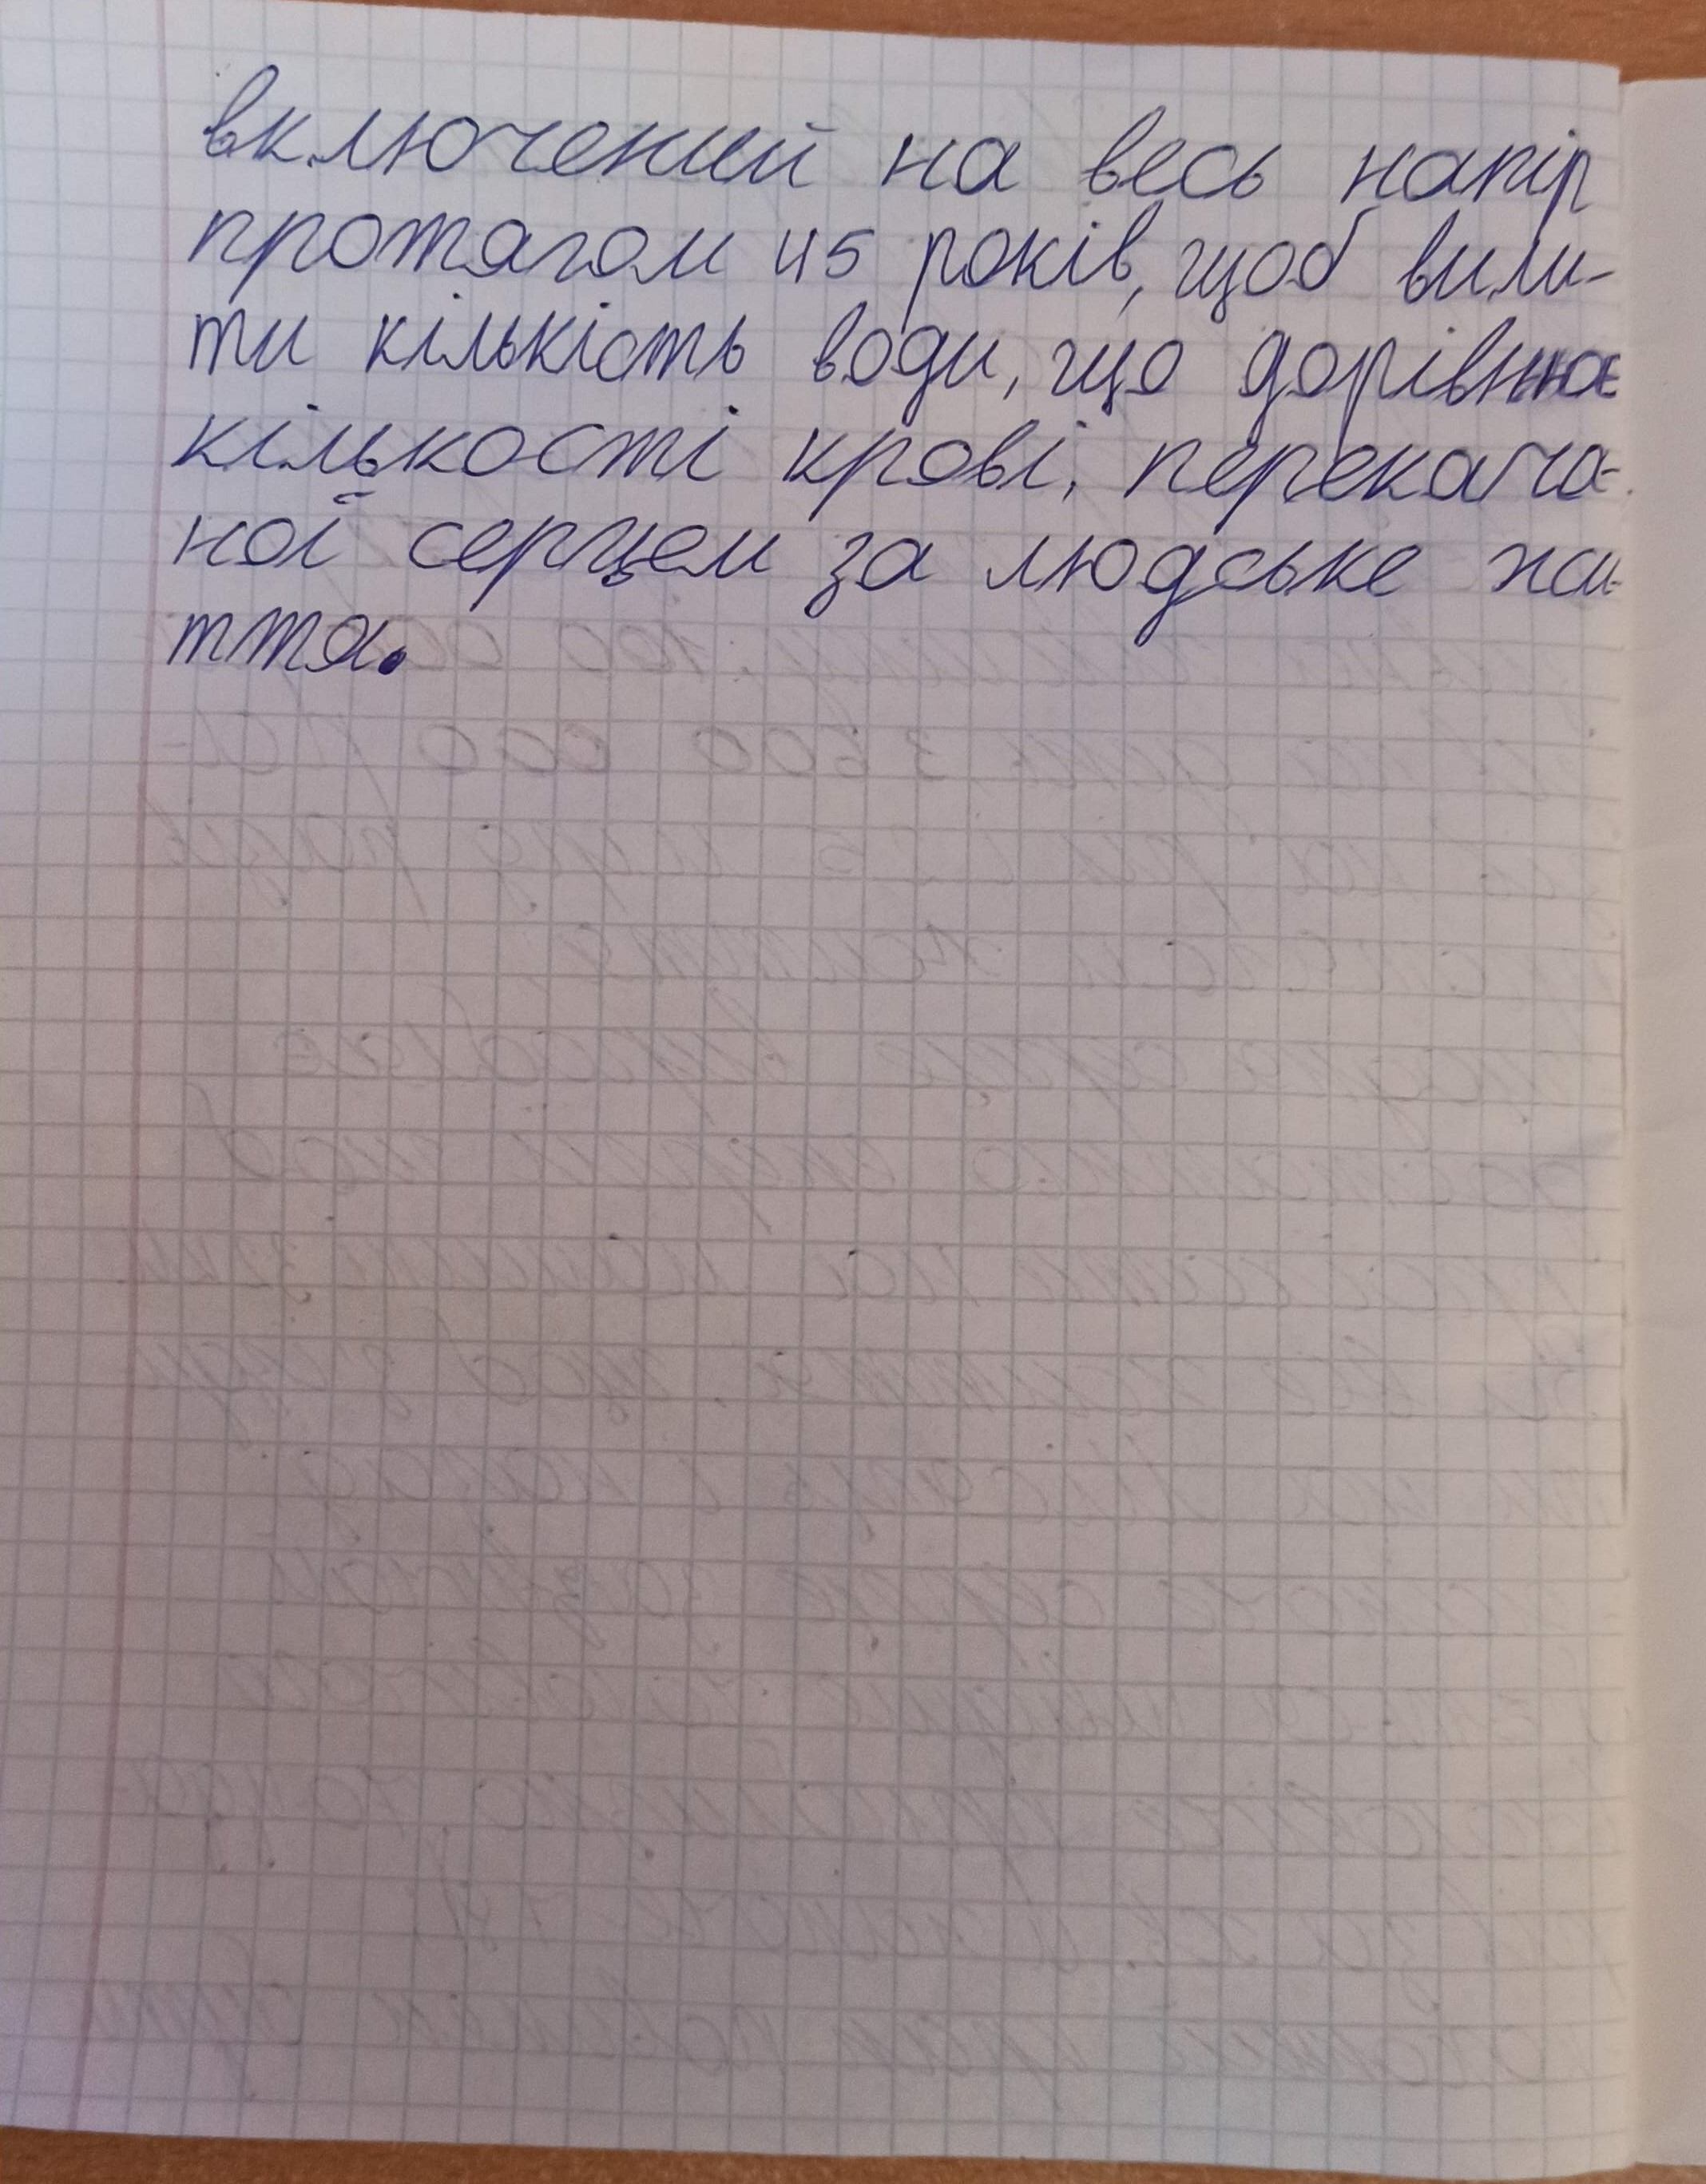 включений на весь напір
протягом 45 років, щоб вили-
ти кількість води, що дорівнює
кількості крові, перекача-
ної серцем за людське жи-
ття.